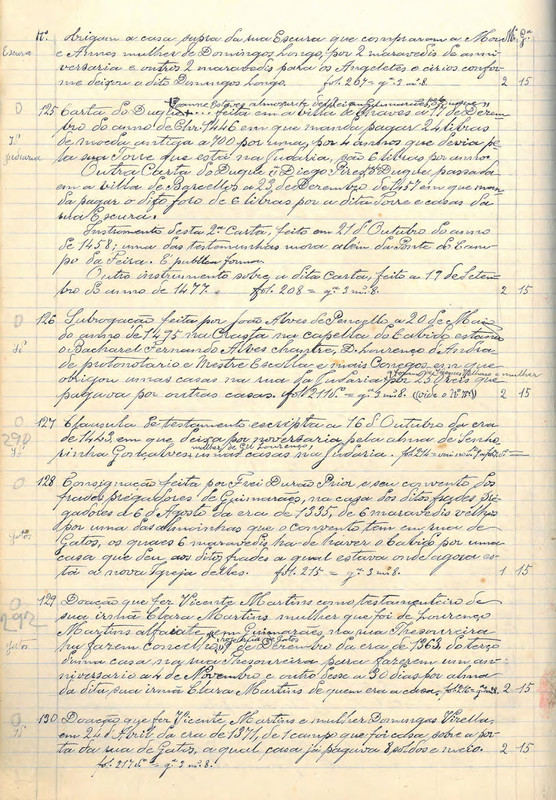 Nº obrigam a casa supra da rua Escura que compraram a Mor Mº Gª
Escura e Annes mulher de Domingos Longo, por 2 maravedis de anni-
versaria e outros 2 maravedis para os Angeletes e cirios confor-
me deixou a dito Domingos Longo. fol. 207 = gª 3 m. 8. 2 15
125 Carta do Duque feita em a villa de Chaves a 17 de Dezem-
bro do anno de Chr. 1446 em que manda pagar 24 libras
de moeda antiga a 700 por uma, por 4 annos que devia pe-
Judiaria la sua Torre que está na Judiaria, são 6 libras por anno.
Outra Carta do Duque a Diego Pires Duque, passada
em a villa de Barcellos a 23 de Dezembro de 1457 em que man-
da pagar o dito foro de 6 libras por a dita Torre e casas da
rua Escura.
Instrumento desta 2ª Carta, feito em 21 d'Outubro do anno
de 1458; uma das testemunhas mora alem da Ponte do Cam-
po da Feira. É publica forma.
Outro instrumento sobre a dita Carta, feito a 19 de Setem-
bro do anno de 1477. = fol. 208 = gª 3 m. 8. 2 15
126 Subrogação feita por João Alves de Pencello a 20 de Maio
do anno de 1475 na Crasta na capella do Cabido estando
o Bacharel Fernando Alves chantre, D. Lourenço d'Andra-
de protonotario e Mestre Escolla e mais Conegos, em que
obrigou umas casas na rua da Judiaria por 250 reis que
pagava por outras casas. fol. 211 = gª 3 m. 8. 2 15
127 Clausula de testamento escripta a 16 d'Outubro da era
298 de 1443, em que deixa por noversaria pela alma de Senho-
mulher de Gil Lourenço
rinha Gonçalves umas casas na Judiaria.
128 Consignação feita por Frei Durão Prior e seu convento dos
frades pregadores de Guimarães, na casa dos ditos frades pre-
gadores a 6 d'Agosto da era de 1335, de 6 maravedis velhos
por uma das almoinhas que o convento tem em rua de
Gatos Gatos, os quaes 6 maravedis ha de haver o Cabido por uma
casa que deu aos ditos frades a qual estava onde agora es-
tá a nova Igreja delles. fol. 215 = gª 3 m. 8. 1 15
129 Doação que fez Vicente Martins como testamenteiro de
292 sua irmã Clara Martins mulher que foi de Lourenço
Martins alfaiate, em Guimarães, na rua Thesoureira
hu fazem concelho, de Dezembro da era de 1363, do terço
duma casa na rua Thesoureira para fazerem um an-
niversario a 4 de Novembro e outro desse a 30 dias por alma
da dita sua irmã Clara Martins de quem era a casa. 2 15
130 Doação que fez Vicente Martins e mulher Domingas Virella,
em 24 d'Abril da era de 1371, de 1 campo que foi casa, sobre a por-
ta da rua de Gatos, a qual casa já pagava 8 soldos e meio. 2 15
fol. 217 = gª 3 m. 8.